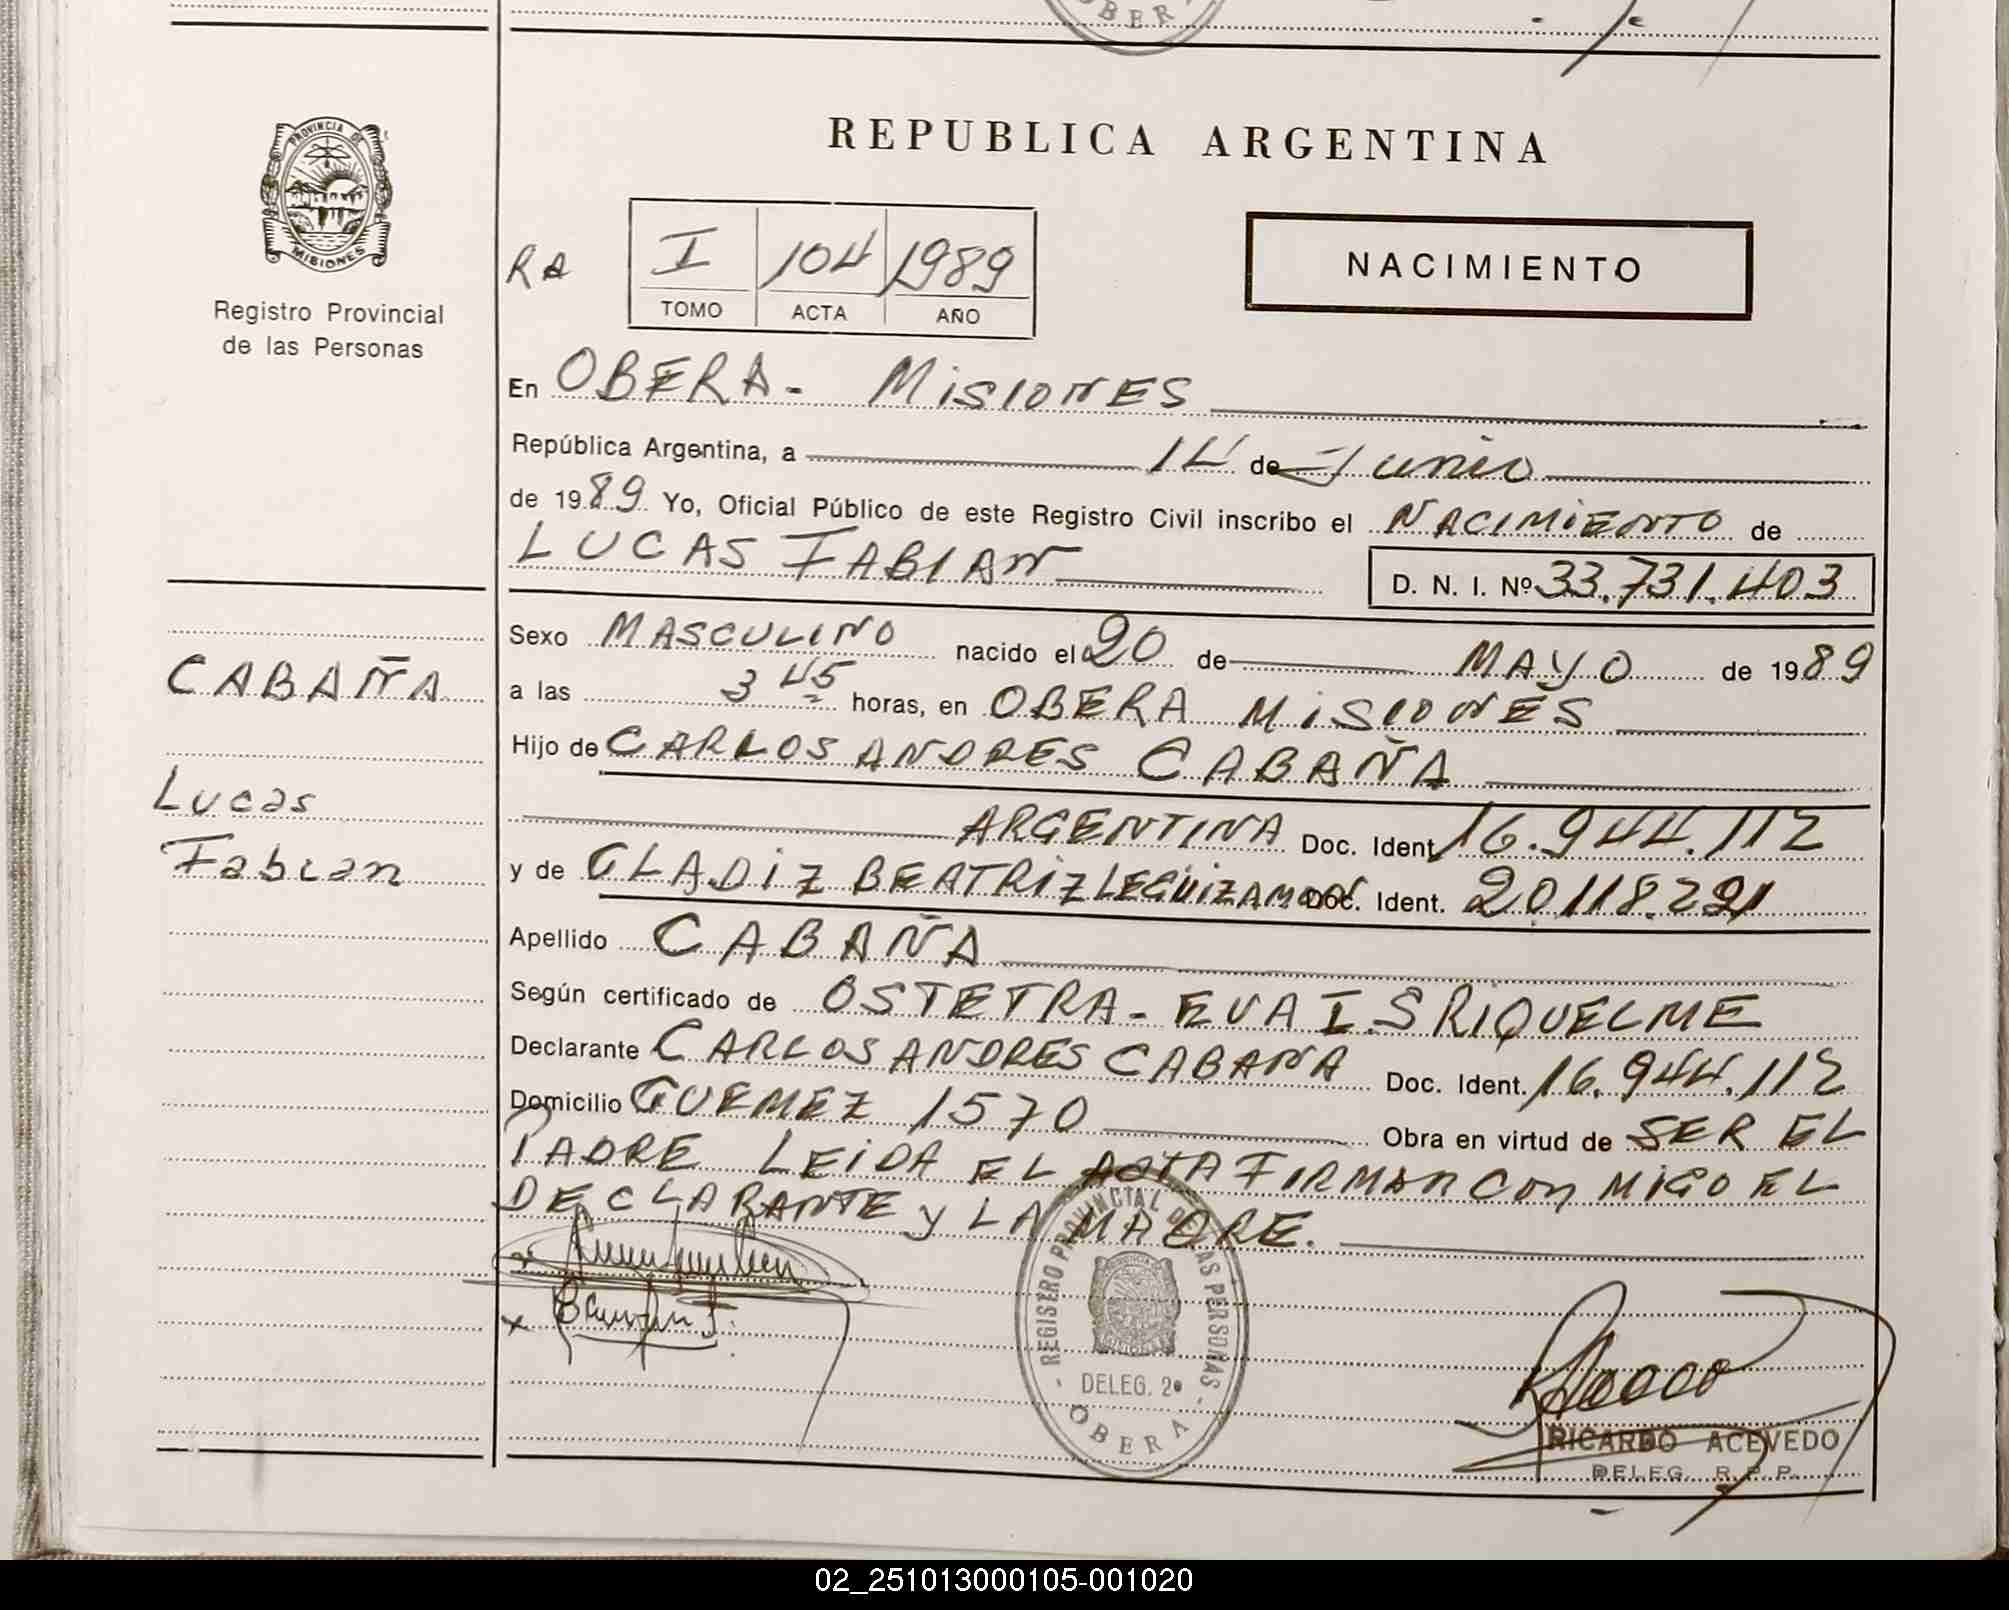 OBER
PROVINCIA DE
MISIONES
Registro Provincial
de las Personas
REPUBLICA ARGENTINA
RA I 104 1989
TOMO ACTA AÑO
NACIMIENTO
En OBERA - MiSIONES
República Argentina, a 14 de Junio
de 1989 Yo, Oficial Público de este Registro Civil inscribo el NACIMIENTO de
LUCAS FABIAN
D. N. I. Nº 33.731.403
Sexo MASCULINO nacido el 20 de MAYO de 1989
a las 3 45 horas, en OBERA MiSIONES
Hijo de CARLOS ANDRES CABAÑA
ARGENTINA Doc. Ident 16.944.112
y de GLADIZ BEATRIZ LEGUIZAMON Doc. Ident. 20.118.221
Apellido CABAÑA
Según certificado de OSTETRA - EVA I. S RIQUELME
Declarante CARLOS ANDRES CABAÑA Doc. Ident. 16.944.112
Domicilio GUEMEZ 1570 Obra en virtud de SER EL
PADRE LEIDA EL ACTA FIRMAN CON MIGO EL
DECLARANTE y LA MADRE.
CABAÑA
Lucas
Fabian
REGISERO PROVINCIAL DE LAS PERSONAS
DELEG. 2º
OBERA
RICARDO ACEVEDO
DELEG. R. P. P.
02_251013000105-001020